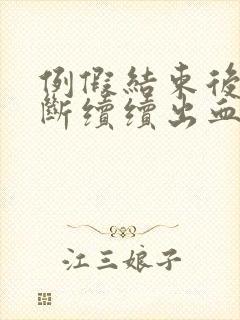 例假結束後
斷續續出血
江三娘子